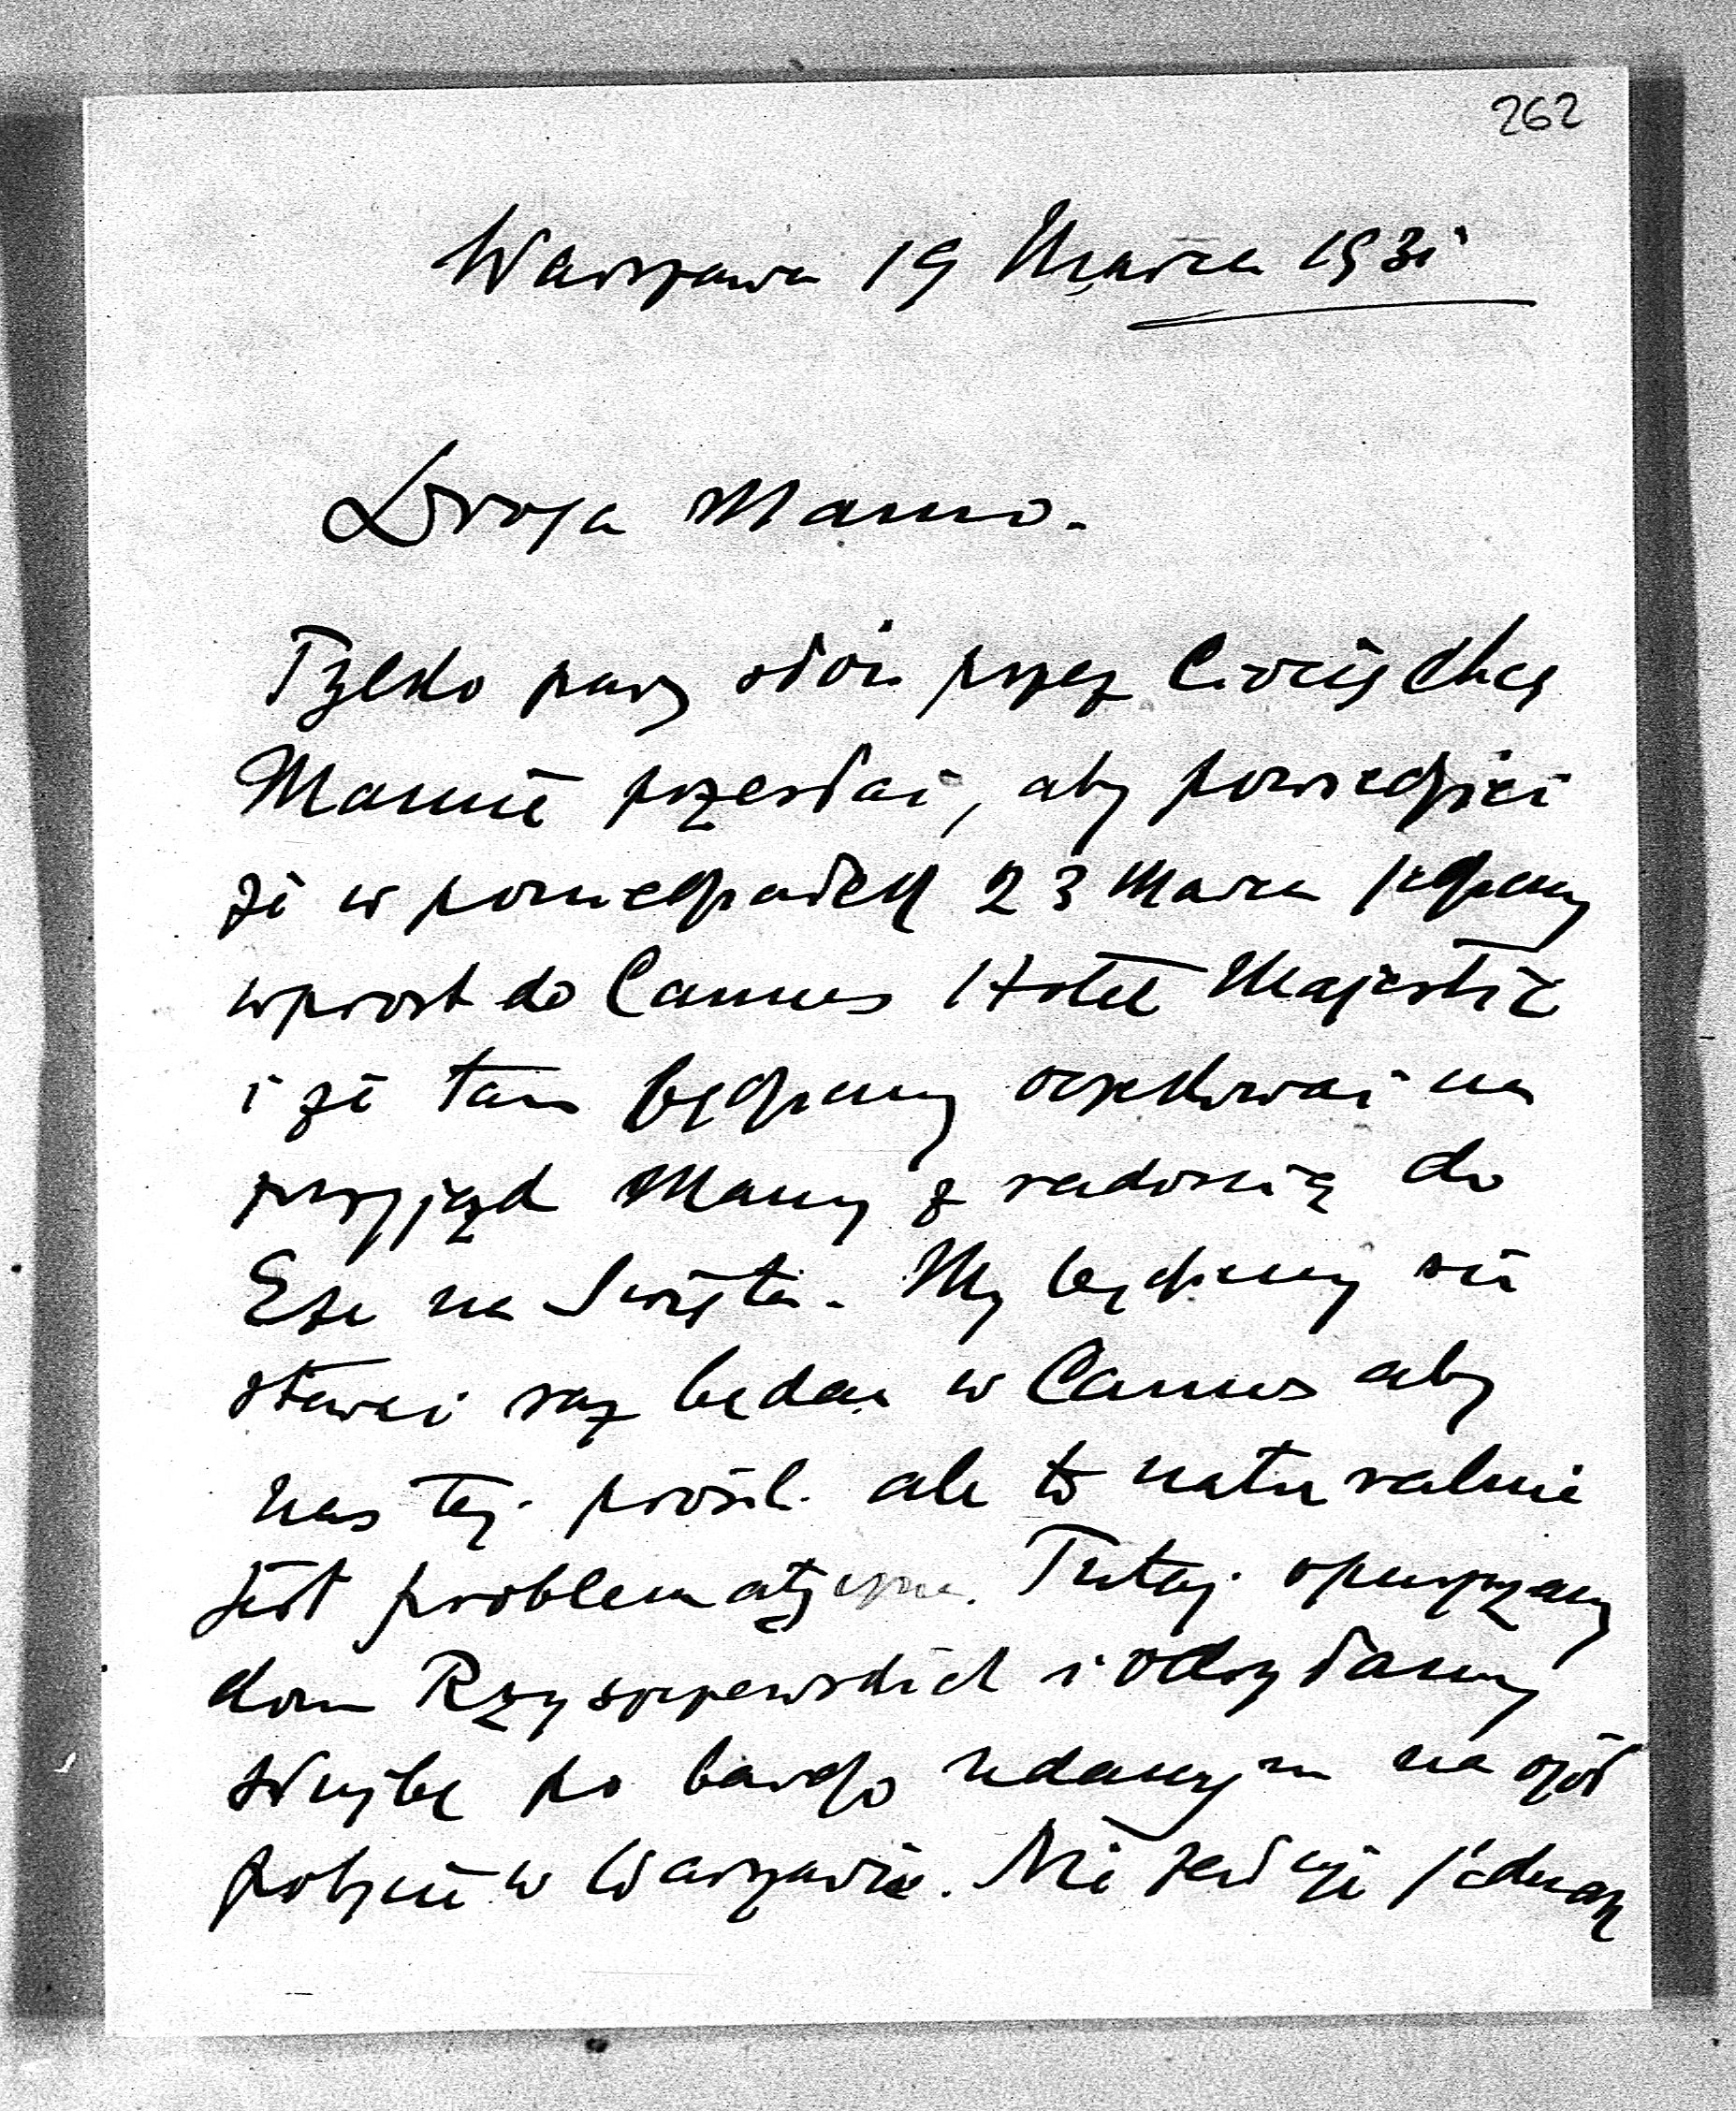 262
Warszawa 19 Marca 1931
Droga Mamo.
Tylko parę słów przez Ciocię chcę
Mamie przesłać, aby powiedzieć
że w poniedziałek 23 Marca jedziemy
wprost do Cannes Hotel Majestic
i że tam będziemy oczekiwać na
przyjazd Mamy z radością do
Eze na Święta. My będziemy się
starać raz będąc w Cannes aby
nas tez prosił. ale to naturalnie
jest problematyczne. Tutaj opuszczamy
dom Rzyszczewskich i oddaliśmy
służbę po bardzo udanym na ogół
pobycie w Warszawie. Nie jednak